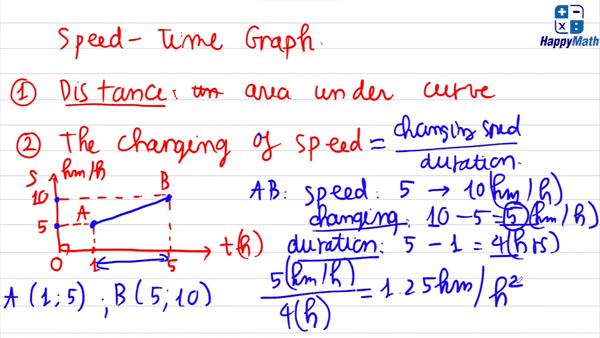 Speed-Time Graph.
HappyMath
① Distance: area under curve
② The changing of speed = changing speed / duration.
S km/h
10
5
A
B
0
1
5
t(h)
AB: speed: 5 → 10 (km/h)
changing: 10 - 5 = 5 (km/h)
duration: 5 - 1 = 4(hrs)
A (1;5) ; B(5;10)
5(km/h) / 4(h) = 1.25 km/h²